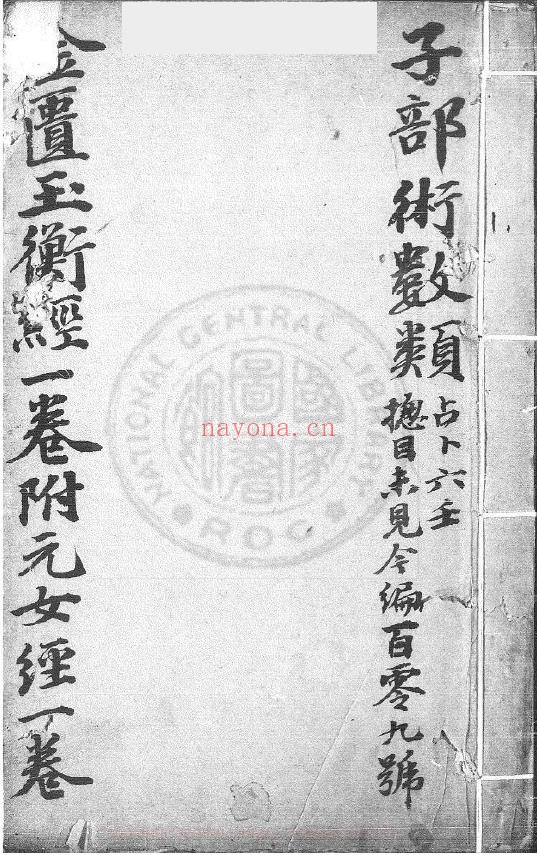 子部術數類
占卜六壬
揔目未見今編百零九號
金匱玉衡經一卷附元女經一卷
NATIONAL CENTRAL LIBRARY
國家圖書館
ROC
nayona.cn